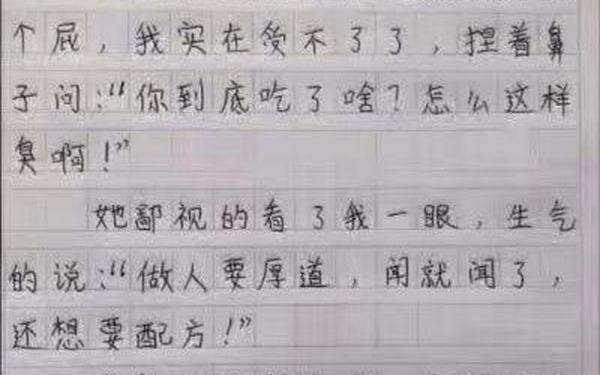 个屁，我实在受不了了，捏着鼻
子问：“你到底吃了啥？怎么这样
臭啊！”
她鄙视的看了我一眼，生气
的说：“做人要厚道，闻就闻了，
还想要配方！”